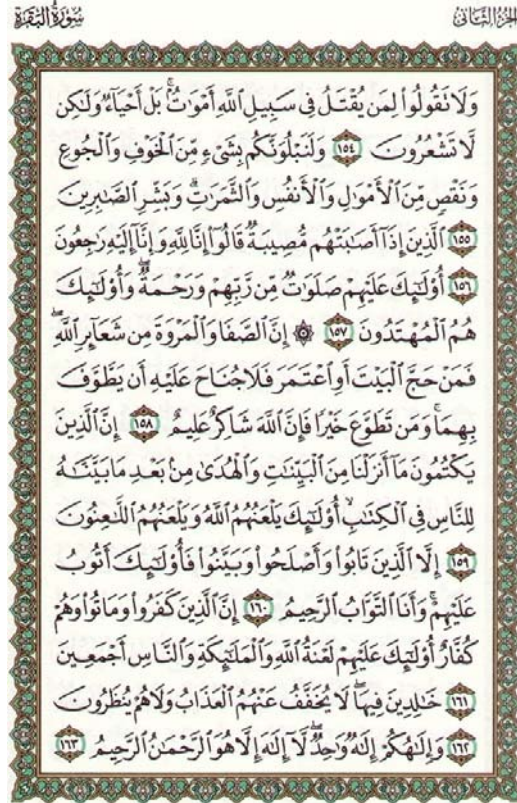 الجزء الثاني
سورة البقرة
وَلَا تَقُولُوا۟ لِمَن يُقْتَلُ فِى سَبِيلِ ٱللَّهِ أَمْوَٰتٌۢ ۚ بَلْ أَحْيَآءٌ وَلَٰكِن
لَّا تَشْعُرُونَ ١٥٤ وَلَنَبْلُوَنَّكُم بِشَىْءٍ مِّنَ ٱلْخَوْفِ وَٱلْجُوعِ
وَنَقْصٍ مِّنَ ٱلْأَمْوَٰلِ وَٱلْأَنفُسِ وَٱلثَّمَرَٰتِ ۗ وَبَشِّرِ ٱلصَّٰبِرِينَ
١٥٥ ٱلَّذِينَ إِذَآ أَصَٰبَتْهُم مُّصِيبَةٌ قَالُوٓا۟ إِنَّا لِلَّهِ وَإِنَّآ إِلَيْهِ رَٰجِعُونَ
١٥٦ أُو۟لَٰٓئِكَ عَلَيْهِمْ صَلَوَٰتٌ مِّن رَّبِّهِمْ وَرَحْمَةٌ ۖ وَأُو۟لَٰٓئِكَ
هُمُ ٱلْمُهْتَدُونَ ١٥٧ ۞ إِنَّ ٱلصَّفَا وَٱلْمَرْوَةَ مِن شَعَآئِرِ ٱللَّهِ ۖ
فَمَنْ حَجَّ ٱلْبَيْتَ أَوِ ٱعْتَمَرَ فَلَا جُنَاحَ عَلَيْهِ أَن يَطَّوَّفَ
بِهِمَا ۚ وَمَن تَطَوَّعَ خَيْرًا فَإِنَّ ٱللَّهَ شَاكِرٌ عَلِيمٌ ١٥٨ إِنَّ ٱلَّذِينَ
يَكْتُمُونَ مَآ أَنزَلْنَا مِنَ ٱلْبَيِّنَٰتِ وَٱلْهُدَىٰ مِنۢ بَعْدِ مَا بَيَّنَّٰهُ
لِلنَّاسِ فِى ٱلْكِتَٰبِ ۙ أُو۟لَٰٓئِكَ يَلْعَنُهُمُ ٱللَّهُ وَيَلْعَنُهُمُ ٱللَّٰعِنُونَ
١٥٩ إِلَّا ٱلَّذِينَ تَابُوا۟ وَأَصْلَحُوا۟ وَبَيَّنُوا۟ فَأُو۟لَٰٓئِكَ أَتُوبُ
عَلَيْهِمْ ۚ وَأَنَا ٱلتَّوَّابُ ٱلرَّحِيمُ ١٦٠ إِنَّ ٱلَّذِينَ كَفَرُوا۟ وَمَاتُوا۟ وَهُمْ
كُفَّارٌ أُو۟لَٰٓئِكَ عَلَيْهِمْ لَعْنَةُ ٱللَّهِ وَٱلْمَلَٰٓئِكَةِ وَٱلنَّاسِ أَجْمَعِينَ
١٦١ خَٰلِدِينَ فِيهَا ۖ لَا يُخَفَّفُ عَنْهُمُ ٱلْعَذَابُ وَلَا هُمْ يُنظَرُونَ
١٦٢ وَإِلَٰهُكُمْ إِلَٰهٌ وَٰحِدٌ ۖ لَّآ إِلَٰهَ إِلَّا هُوَ ٱلرَّحْمَٰنُ ٱلرَّحِيمُ ١٦٣